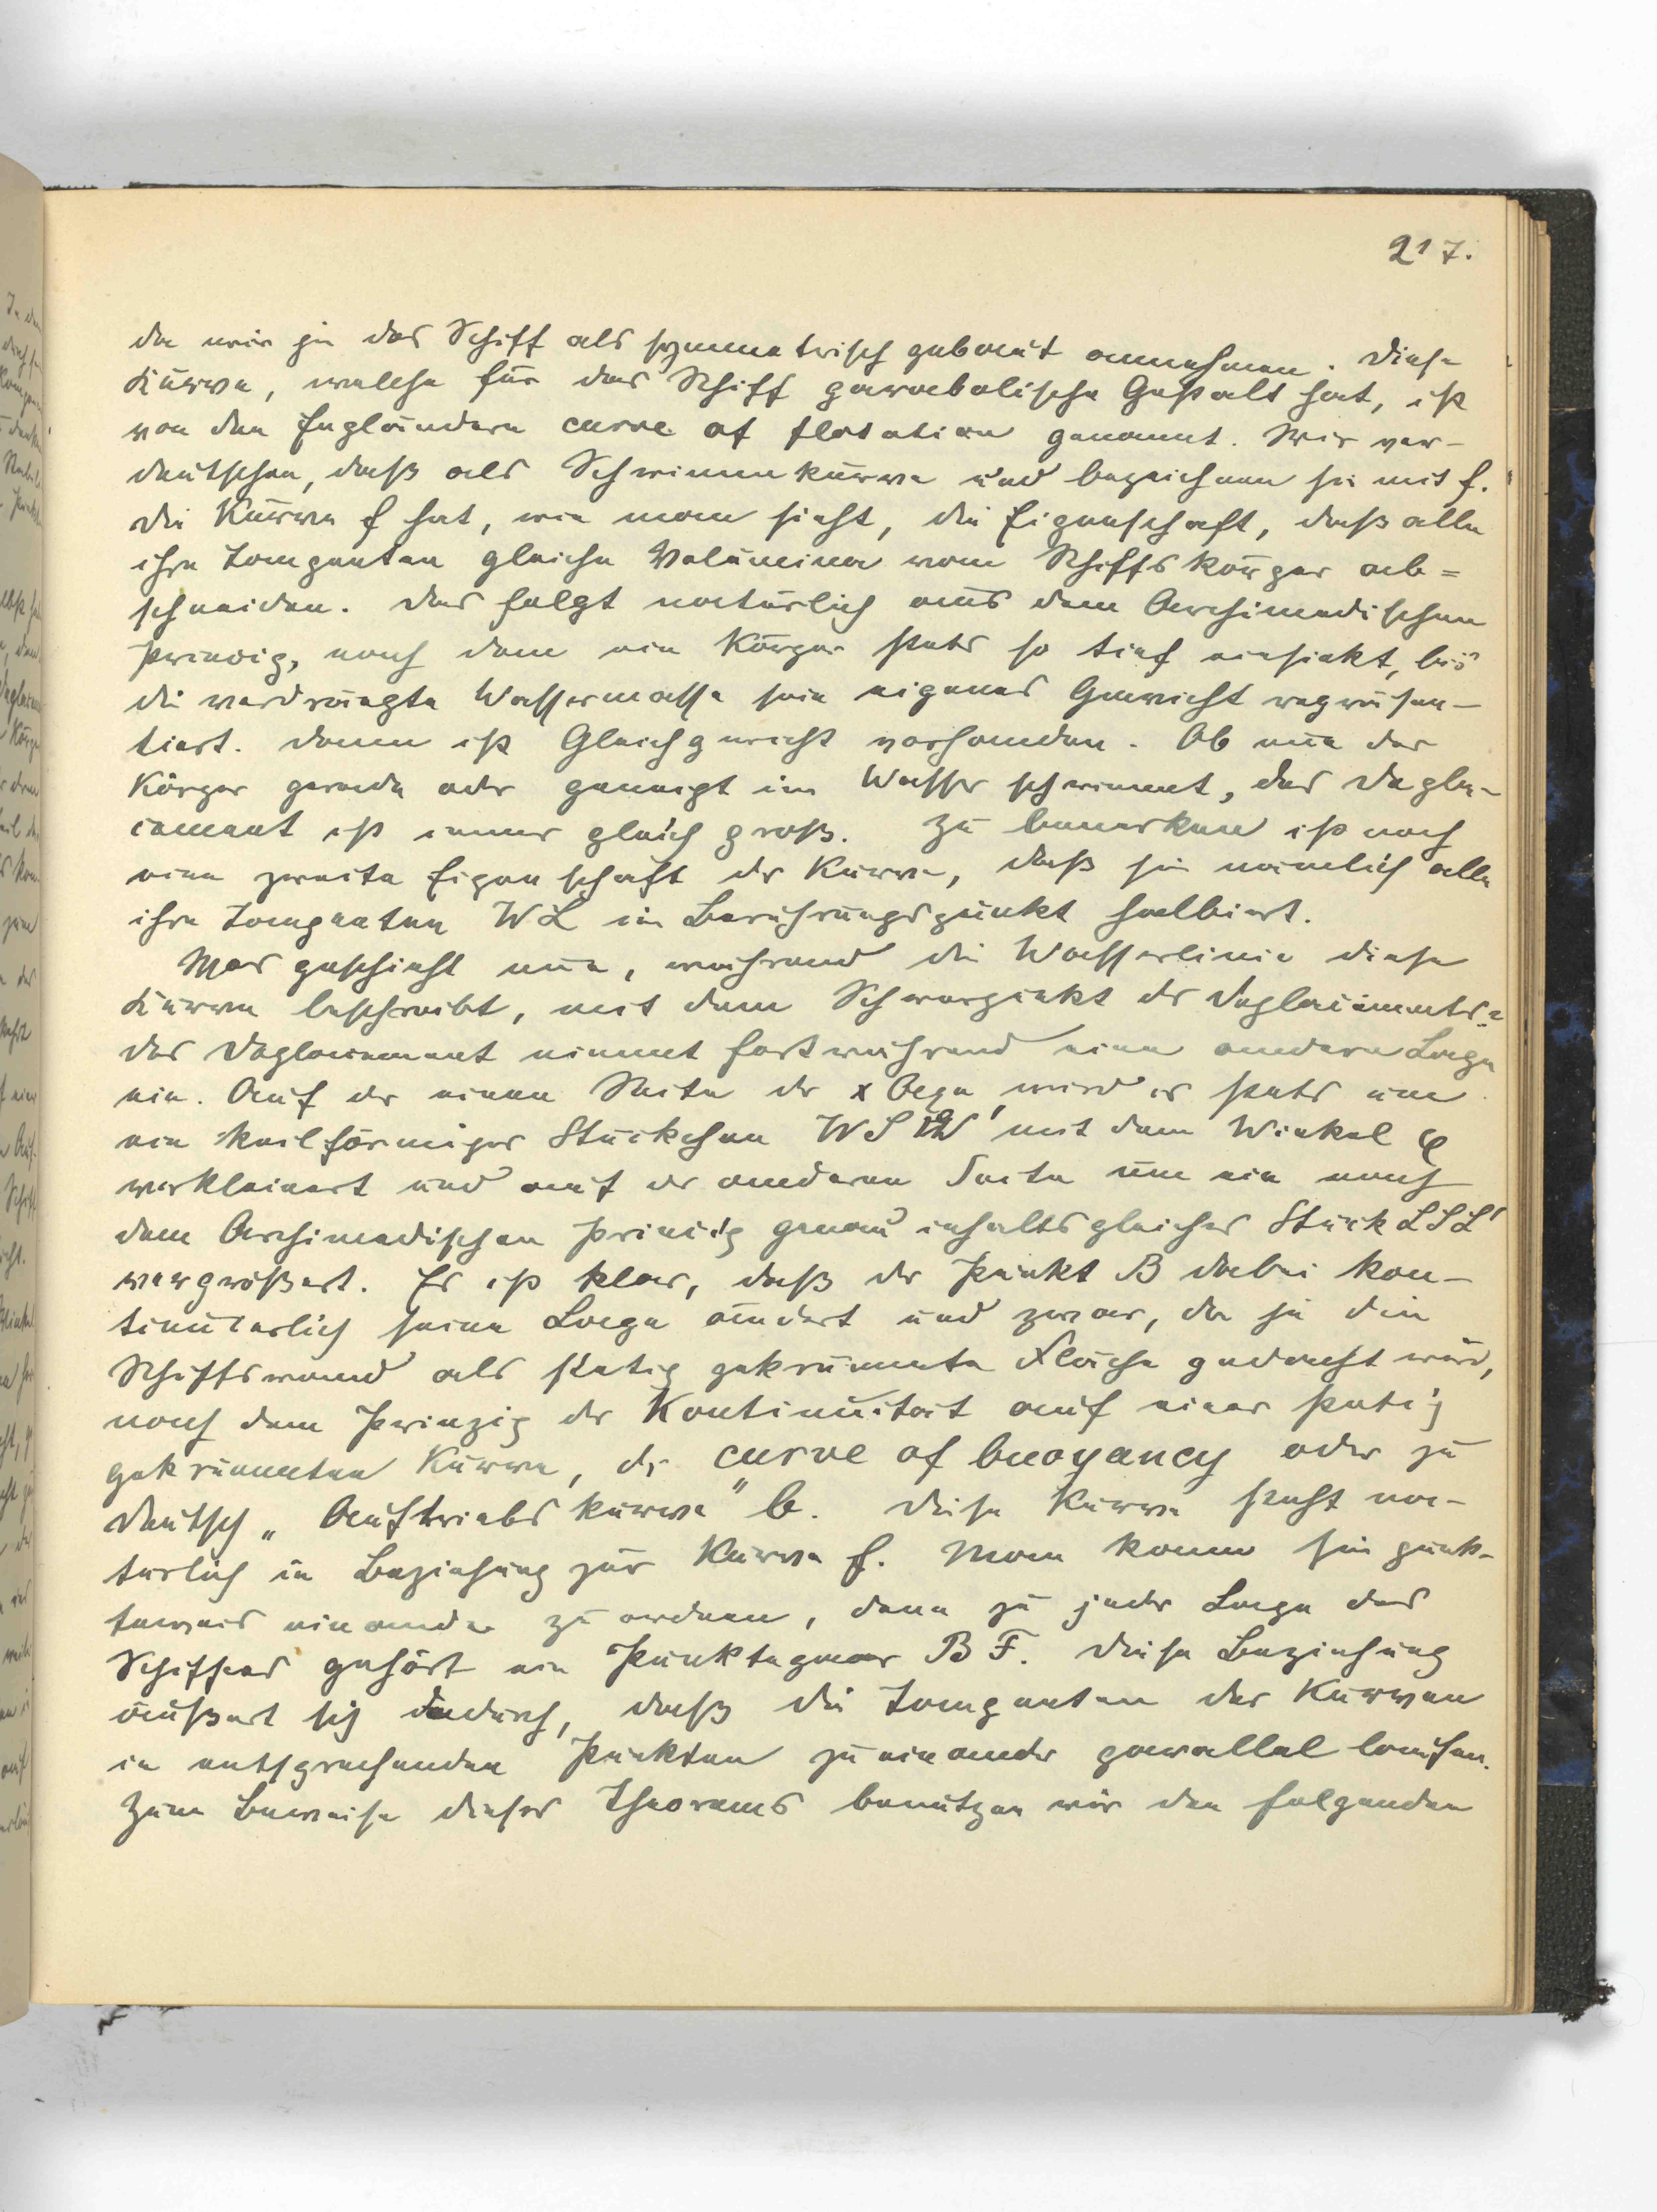 217.
da wir ja das Schiff als symmetrisch gebaut annehmen. Diese
Kurve, welche für das Schiff parabolische Gestalt hat, ist
von den Engländern curve of flotation genannt. Wir ver-
deutschen, daß als Schwimmkurve und bezeichnen sie mit f.
Die Kurve f hat, wie man sieht, die Eigenschaft, daß alle
ihre Tangenten gleiche Volumina vom Schiffskörper ab=
schneiden. Das folgt natürlich aus dem Archimedischen
Prinzip, nach dem ein Körper stets so tief einsinkt, bis
die verdrängte Wassermasse sein eigenes Gewicht repräsen-
tiert. Dann ist Gleichgewicht vorhanden. Ob nun der
Körper gerade oder geneigt im Wasser schwimmt, das Depla-
cement ist immer gleich groß. Zu bemerken ist noch
eine zweite Eigenschaft der Kurve, daß sie nämlich alle
ihre Tangenten WL im Berührungspunkt halbiert.
Was geschieht nun, während die Wasserlinie diese
Kurve beschreibt, mit dem Schwerpunkt des Deplacements?
Das Deplacement nimmt fortwährend eine andere Lage
ein. Auf der einen Seite der x Axe wird es stets um
ein keilförmiges Stückchen WSW' mit dem Winkel φ
verkleinert und auf der anderen Seite um ein nach
dem Archimedischen Princip genau inhaltsgleiches Stück LSL'
vergrößert. Es ist klar, daß der Punkt B dabei kon-
tinuierlich seine Lage ändert und zwar, da ja die
Schiffswand als stetig gekrümmte Fläche gedacht wird,
nach dem Prinzip der Kontinuität auf einer stetig
gekrümmten Kurve, der curve of buoyancy oder zu
deutsch „Auftriebskurve" b. Diese Kurve steht na-
türlich in Beziehung zur Kurve f. Man kann sie punk-
teweis einander zu ordnen, denn zu jeder Lage des
Schiffes gehört ein Punktepaar BF. Diese Beziehung
äußert sich dadurch, daß die Tangenten der Kurven
in entsprechenden Punkten zu einander parallel laufen.
Zum Beweise dieses Theorems benutzen wir den folgenden